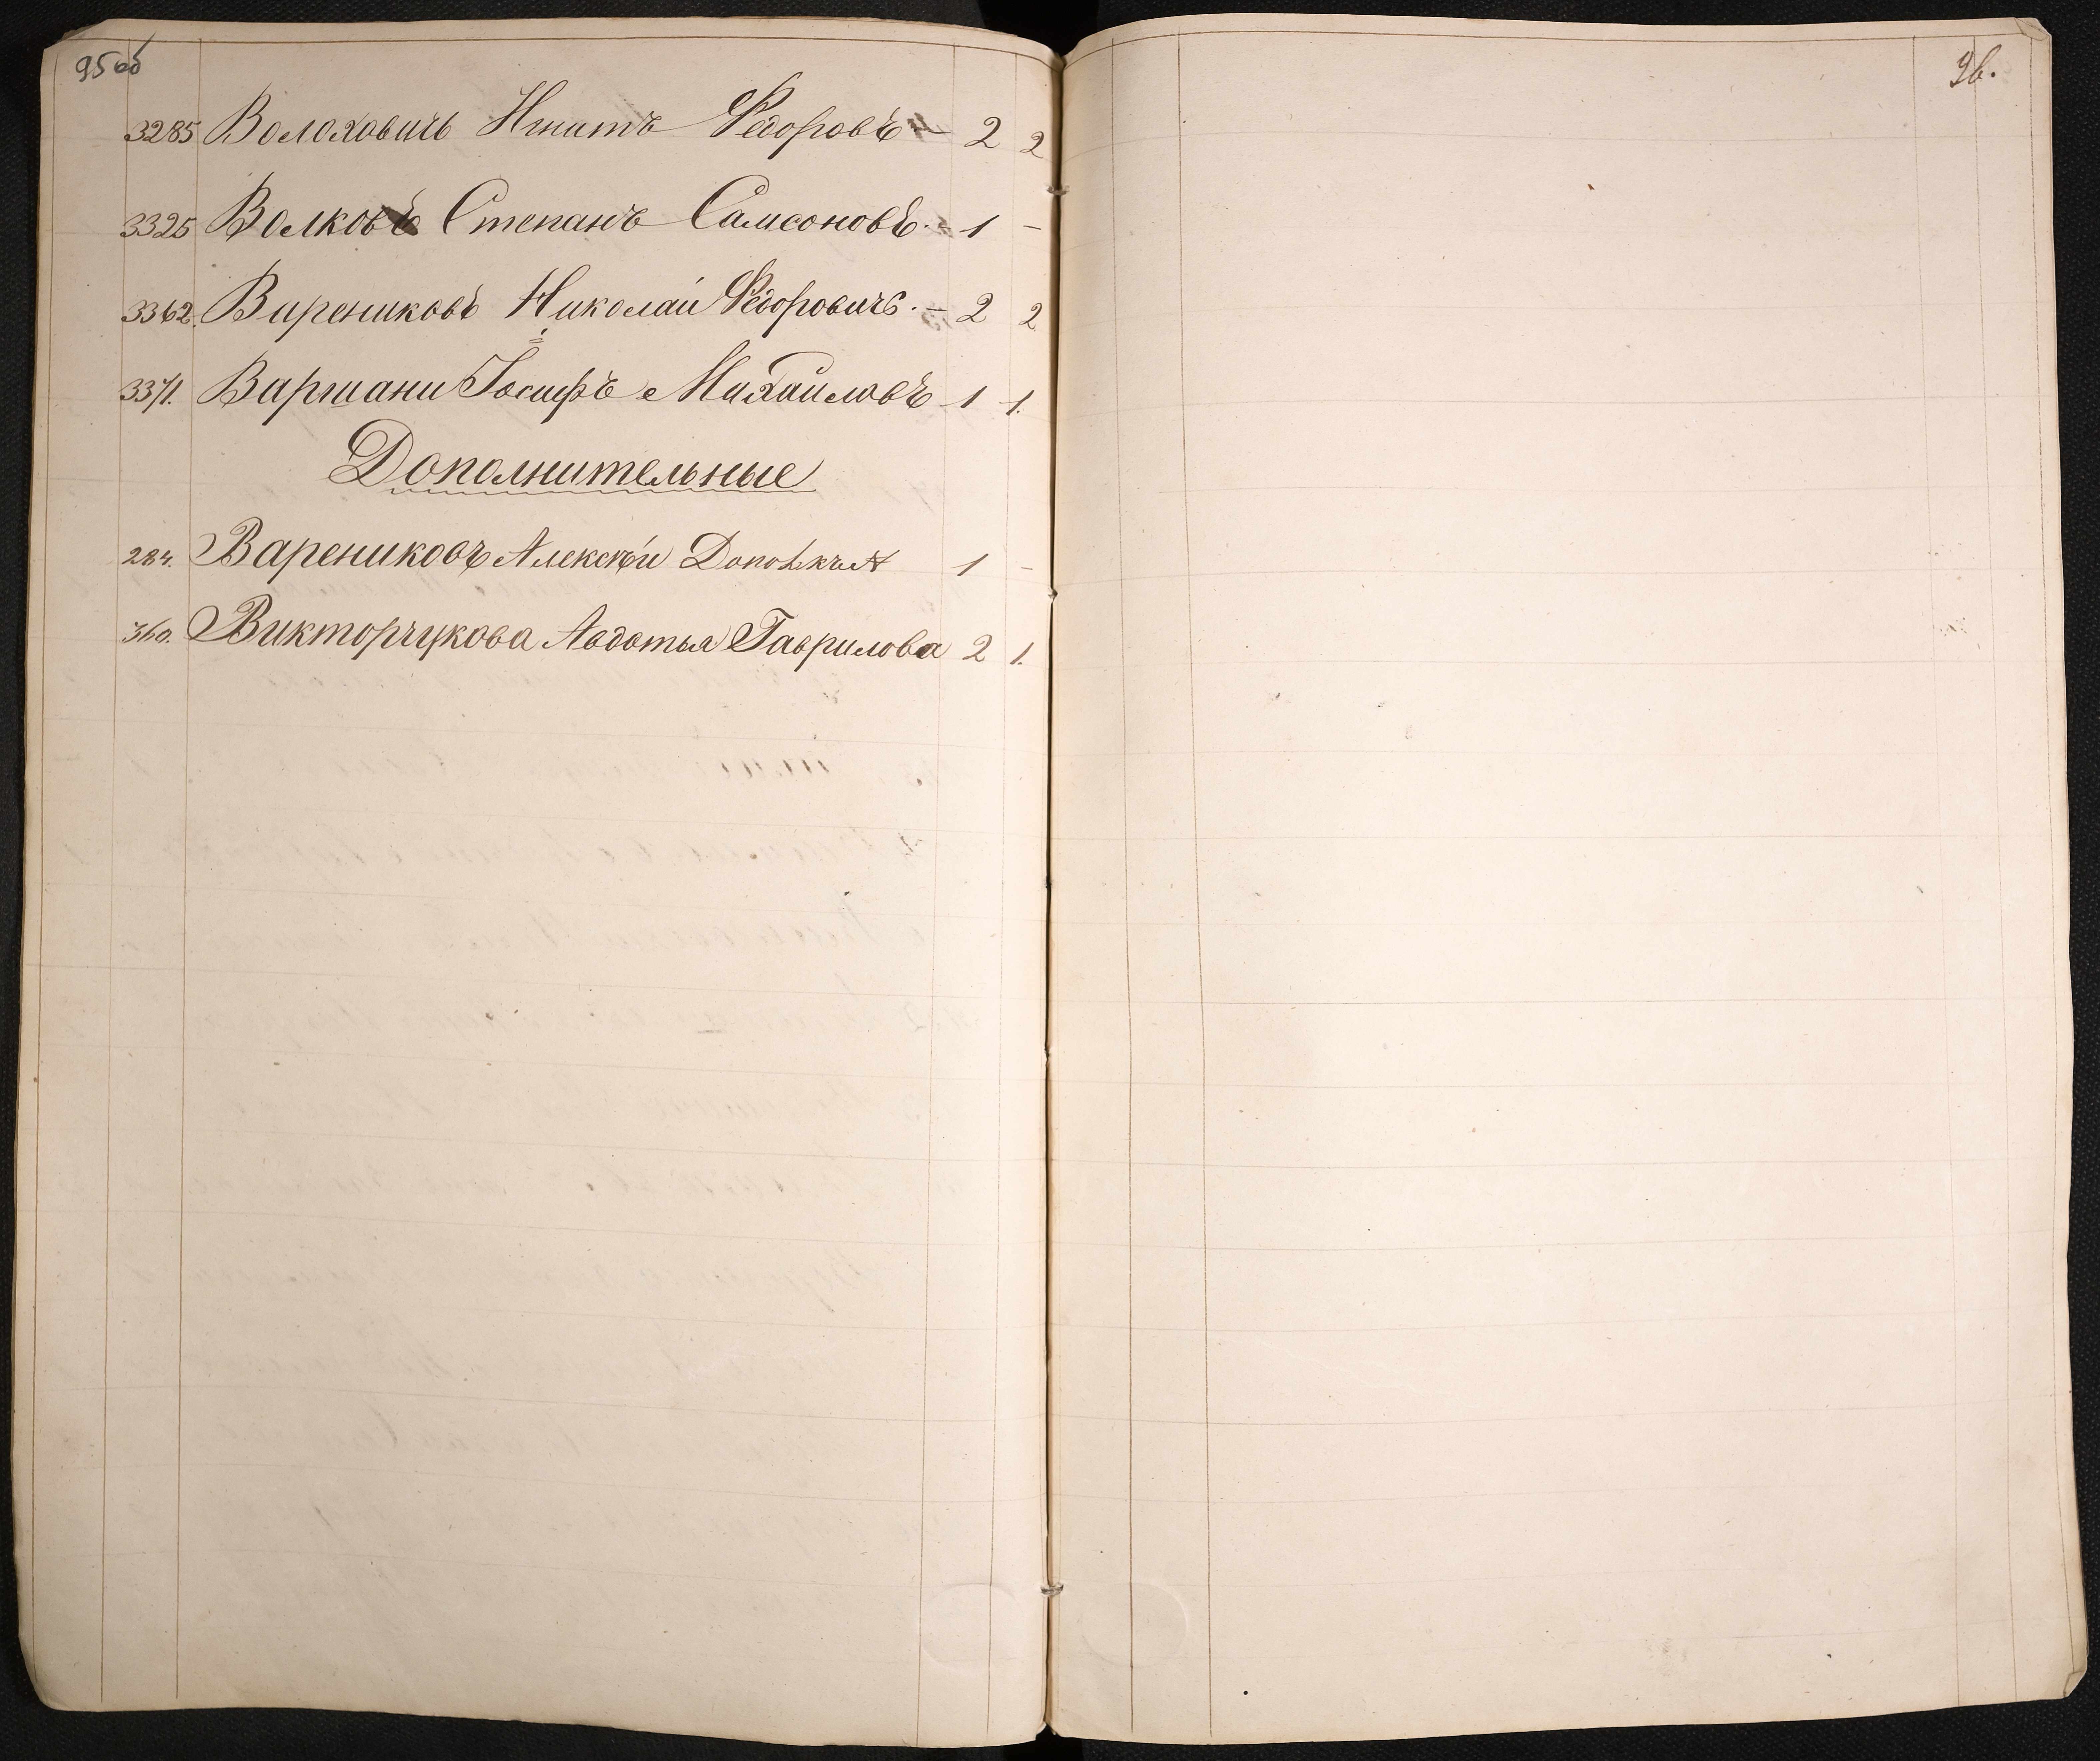 95 об
3285 Волоховичь Игнатъ Федоровъ — 2 2
3325 Волковъ Степанъ Самсоновъ. - 1 -
3362. Варениковъ Николай Федоровичъ. - 2 2
3371. Варшани Іосифъ Михайловъ 1 1.
Дополнительные
284. Варениковъ Алексѣй 1 -
360. Викторчукова Авдотья Гаврилова 2 1.
96.